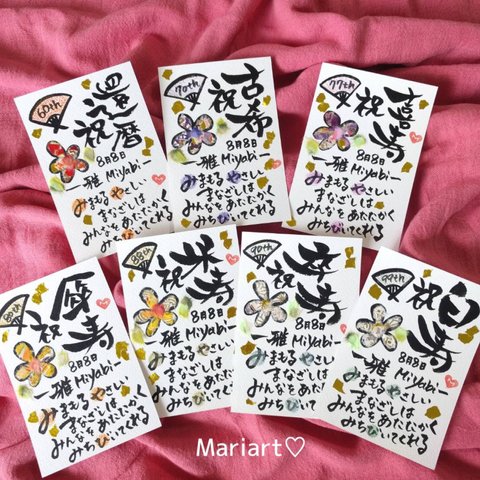 60th
還暦
祝
8月8日
一雅 Miyabi一
みまもる やさしい
まなざしは
みんなをあたたかく
みちびいてくれる
70th
古希
祝
8月8日
一雅 Miyabi一
みまもる やさしい
まなざしは
みんなをあたたかく
みちびいてくれる
77th
喜寿
祝
8月8日
一雅 Miyabi一
みまもる やさしい
まなざしは
みんなをあたたかく
みちびいてくれる
寿
祝
8月8日
一雅 Miyabi一
みまもる やさしい
まなざしは
みんなをあたたかく
みちびいてくれる
88th
米寿
祝
8月8日
一雅 Miyabi一
みまもる やさしい
まなざしは
みんなをあたたかく
みちびいてくれる
90th
卒寿
祝
8月8日
一雅 Miyabi一
みまもる やさしい
まなざしは
みんなをあたた
みちびいて
99th
白寿
祝
8月8日
一雅 Miyabi一
みまもる やさしい
まなざしは
みんなをあたたかく
みちびいてくれる
Mariart♡